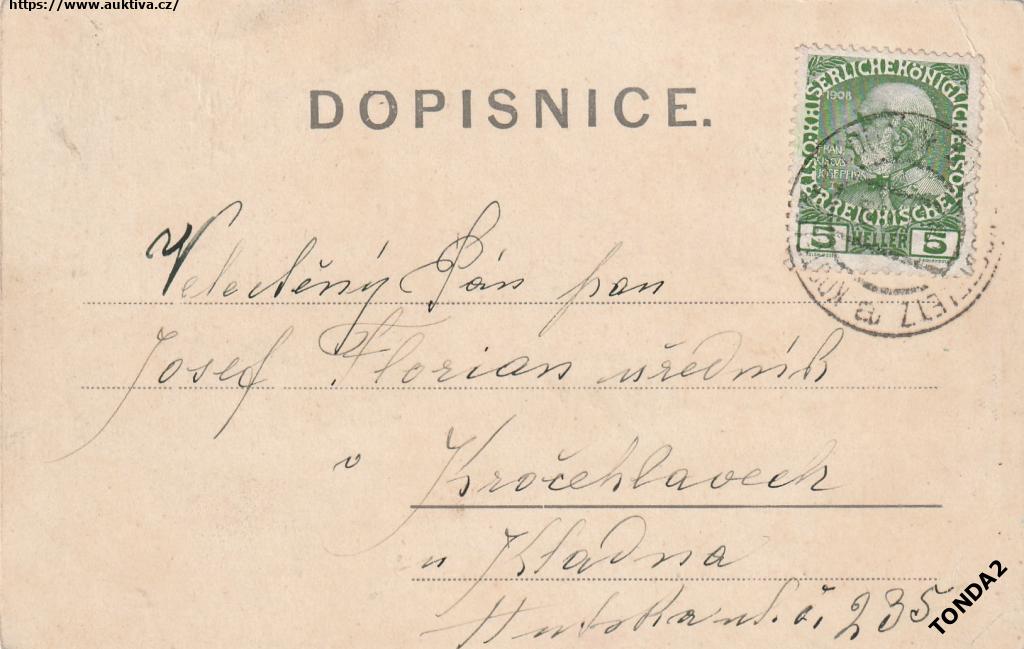 https://www.auktiva.cz/
DOPISNICE.
KAISERLICHE KÖNIGLICHE ÖSTERREICHISCHE
1908
5 HELLER 5
Velectěný Pán pan
Josef Florian úředník
v Kročehlavech
u Kladna
Hutská ul. č. 235
TONDA2